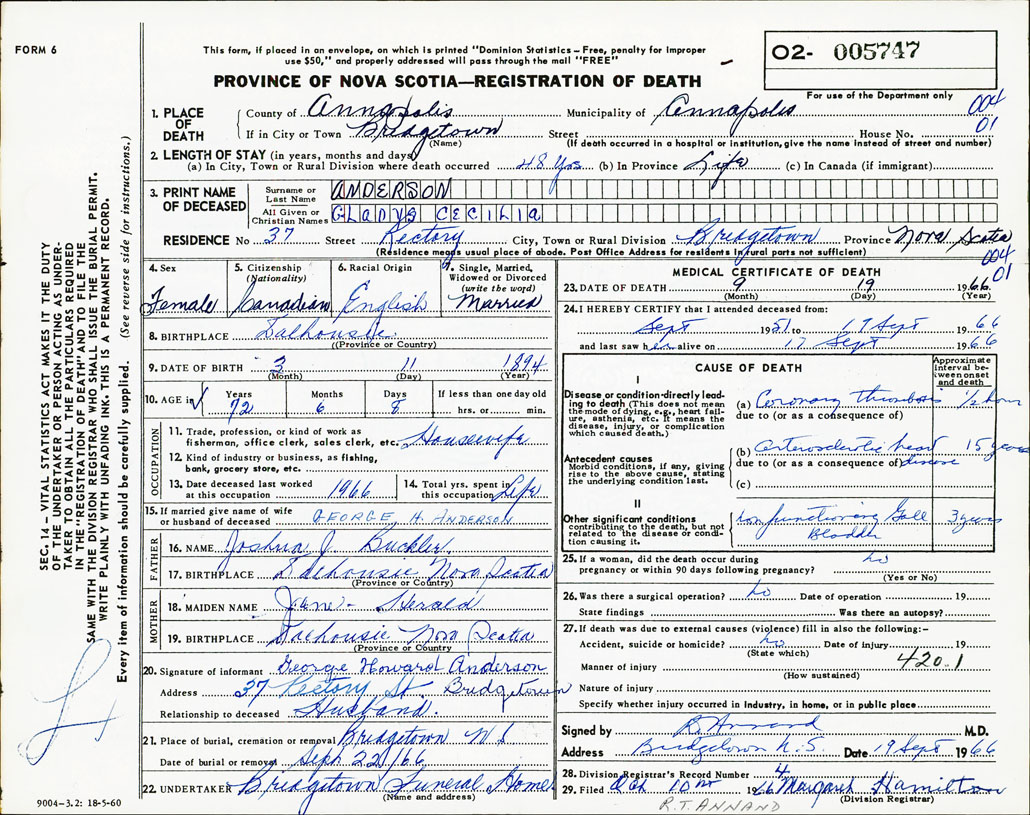 FORM 6
This form, if placed in an envelope, on which is printed "Dominion Statistics – Free, penalty for improper
use $50," and properly addressed will pass through the mail "FREE"
O2- 005747
For use of the Department only
PROVINCE OF NOVA SCOTIA—REGISTRATION OF DEATH
004
01
1. PLACE OF DEATH County of Annapolis Municipality of Annapolis
If in City or Town Bridgetown Street House No.
(Name) (If death occurred in a hospital or institution, give the name instead of street and number)
2. LENGTH OF STAY (in years, months and days)
(a) In City, Town or Rural Division where death occurred 48 Yrs (b) In Province Life (c) In Canada (if immigrant)
3. PRINT NAME OF DECEASED Surname or Last Name ANDERSON
All Given or Christian Names GLADYS CECILIA
RESIDENCE No 37 Street Rectory City, Town or Rural Division Bridgetown Province Nova Scotia
(Residence means usual place of abode. Post Office Address for residents in rural parts not sufficient)
004
01
4. Sex Female
5. Citizenship (Nationality) Canadian
6. Racial Origin English
7. Single, Married, Widowed or Divorced (write the word) Married
8. BIRTHPLACE Dalhousie
(Province or Country)
9. DATE OF BIRTH 3 11 1894
(Month) (Day) (Year)
10. AGE in Years Months Days If less than one day old
72 6 8 hrs. or min.
OCCUPATION
11. Trade, profession, or kind of work as
fishermen, office clerk, sales clerk, etc. Housewife
12. Kind of industry or business, as fishing,
bank, grocery store, etc.
13. Date deceased last worked at this occupation 1966
14. Total yrs. spent in this occupation Life
15. If married give name of wife or husband of deceased GEORGE H. ANDERSON
FATHER
16. NAME Joshua J. Buckler.
17. BIRTHPLACE Dalhousie Nova Scotia
(Province or Country)
MOTHER
18. MAIDEN NAME Jane - Herald
19. BIRTHPLACE Dalhousie Nova Scotia
(Province or Country)
20. Signature of informant George Howard Anderson
Address 37 Rectory St. Bridgetown
Relationship to deceased Husband.
21. Place of burial, cremation or removal Bridgetown N S
Date of burial or removal Sept 22/66
22. UNDERTAKER Bridgetown Funeral Home
(Name and address)
MEDICAL CERTIFICATE OF DEATH
23. DATE OF DEATH 9 19 1966
(Month) (Day) (Year)
24. I HEREBY CERTIFY that I attended deceased from:
Sept 1951 to 19 Sept 1966
and last saw her alive on 17 Sept 1966
CAUSE OF DEATH
Approximate interval between onset and death
I
Disease or condition directly leading to death (This does not mean the mode of dying, e.g., heart failure, asthenia, etc. It means the disease, injury, or complication which caused death.)
(a) Coronary thrombosis 1/2 hour
due to (or as a consequence of)
Antecedent causes
Morbid conditions, if any, giving rise to the above cause, stating the underlying condition last.
(b) arteriosclerotic heart 15 years
due to (or as a consequence of) disease
(c)
II
Other significant conditions
contributing to the death, but not related to the disease or condition causing it.
Non functioning Gall 3 years
Bladder
25. If a woman, did the death occur during
pregnancy or within 90 days following pregnancy? no
(Yes or No)
26. Was there a surgical operation? no Date of operation 19
State findings Was there an autopsy?
27. If death was due to external causes (violence) fill in also the following:–
Accident, suicide or homicide? no Date of injury 19
(State which)
Manner of injury 420.1
(How sustained)
Nature of injury
Specify whether injury occurred in Industry, in home, or in public place
Signed by R Annand M.D.
Address Bridgetown N.S. Date 19 Sept 1966
28. Division Registrar's Record Number 4
29. Filed Oct 10th 1966 Margaret Hamilton
(Division Registrar)
R.T. ANNAND
SEC. 14 – VITAL STATISTICS ACT MAKES IT THE DUTY
OF THE UNDERTAKER OR PERSON ACTING AS UNDER-
TAKER TO OBTAIN ALL THE PARTICULARS REQUIRED
IN THE "REGISTRATION OF DEATH" AND TO FILE THE
SAME WITH THE DIVISION REGISTRAR WHO SHALL ISSUE THE BURIAL PERMIT.
WRITE PLAINLY WITH UNFADING INK. THIS IS A PERMANENT RECORD.
Every item of information should be carefully supplied. (See reverse side for instructions.)
9004–3.2: 18-5-60